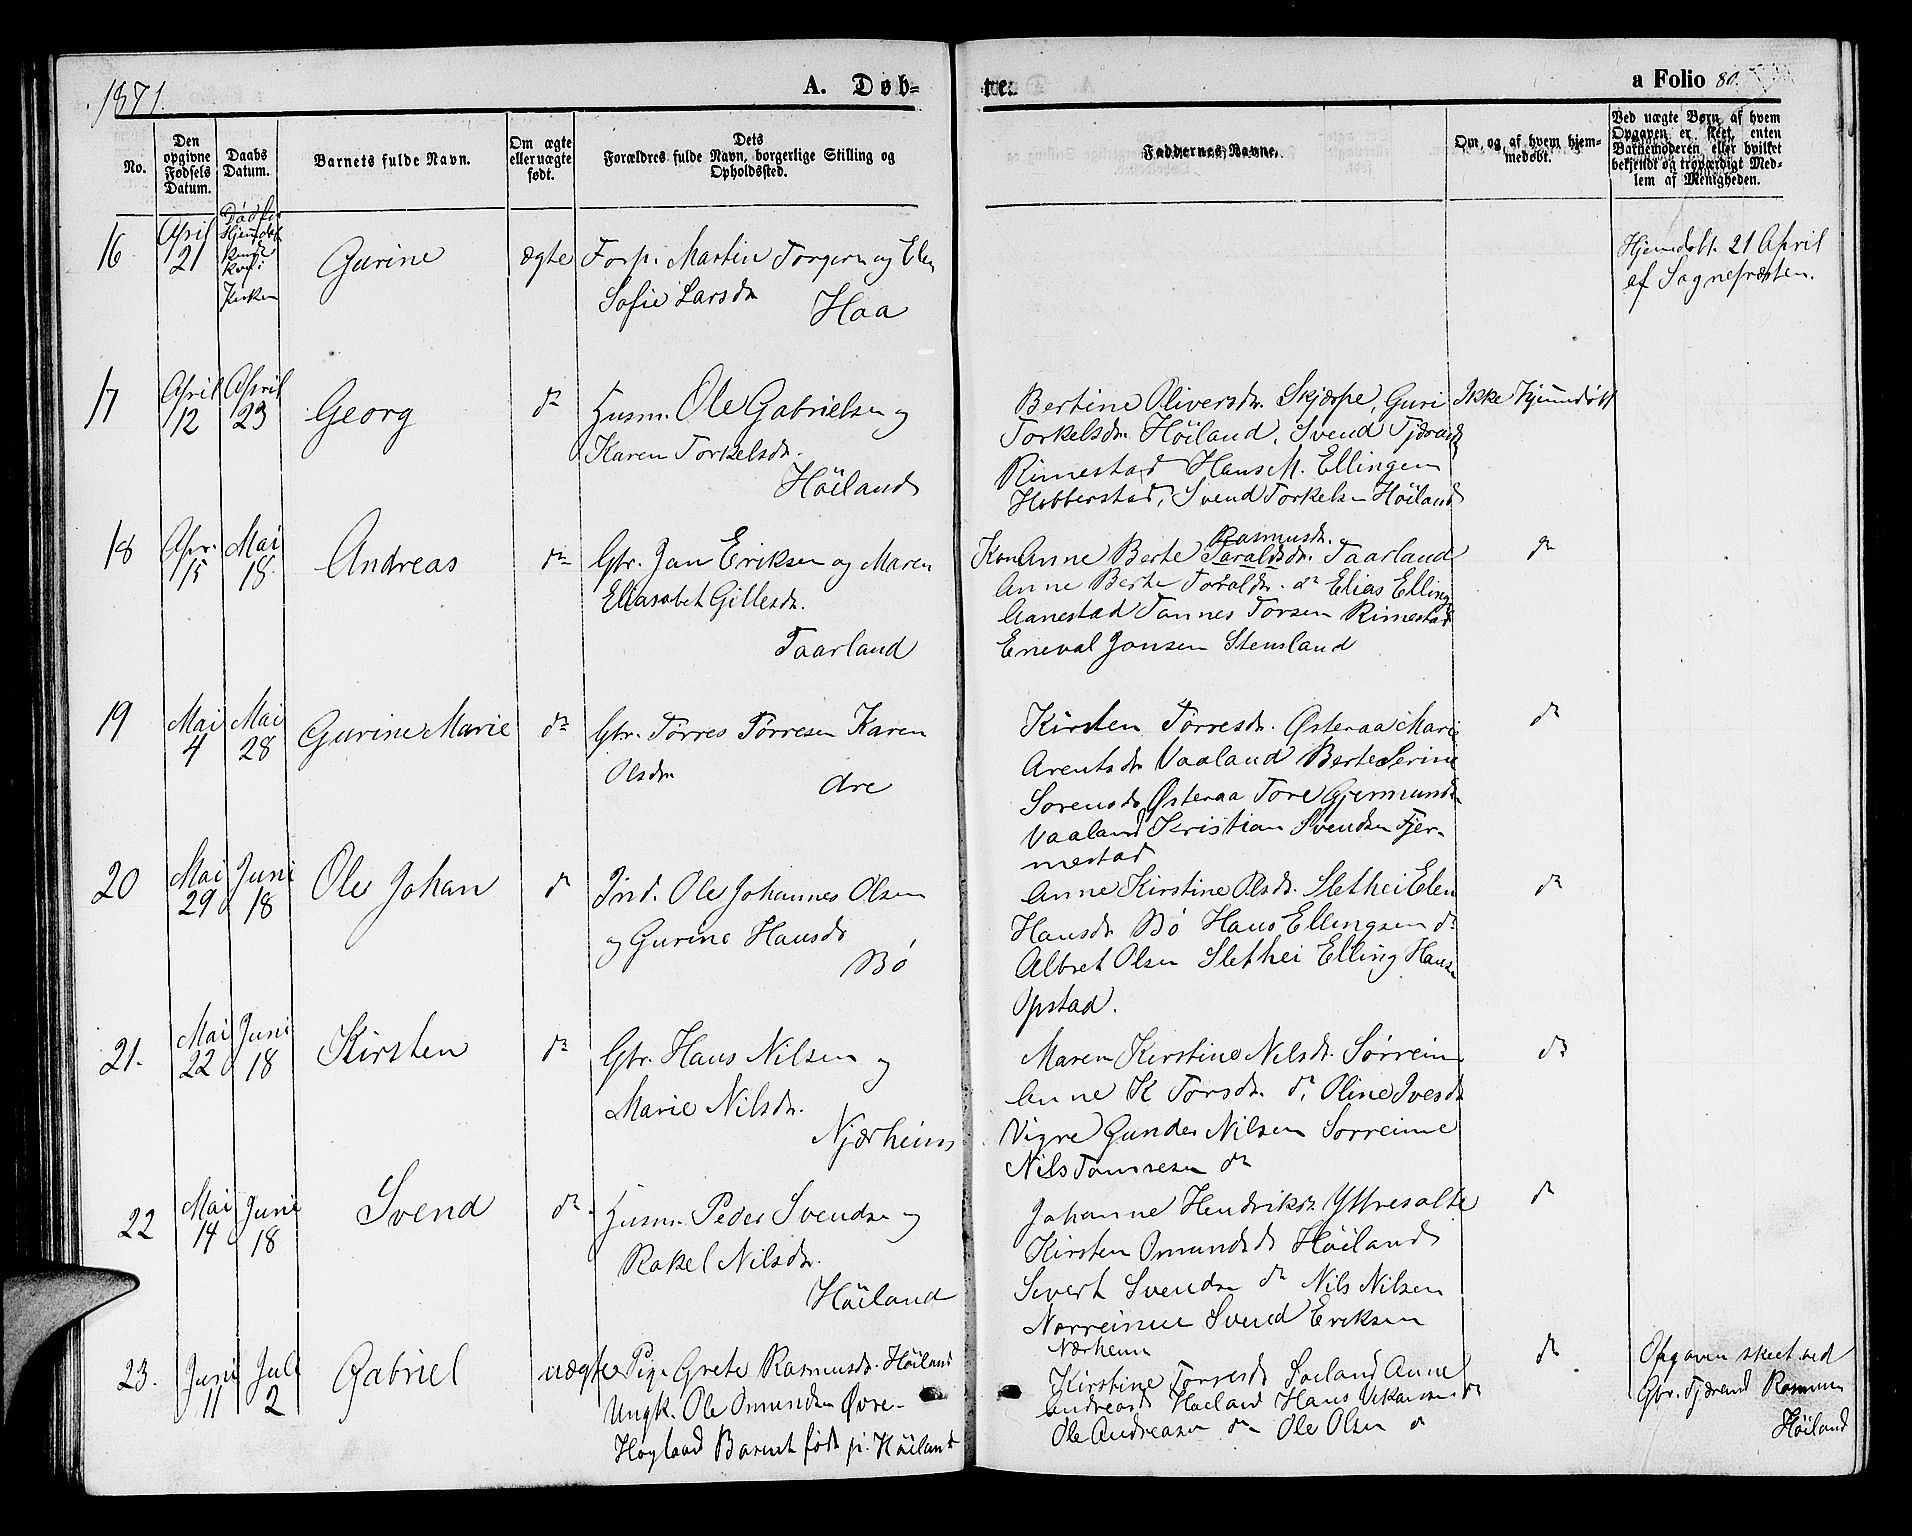 1871.
A. Døb-
te.
a Folio 80.
No.
Den opgivne Fødsels Datum.
Daabs Datum.
Barnets fulde Navn.
Om ægte eller uægte født.
Dets Forældres fulde Navn, borgerlige Stilling og Opholdssted.
Faddernes Navne.
Om, og af hvem hjemmedøbt.
Ved uægte Børn af hvem Opgaven er skeet, enten Barnemoderen eller hvilket bekjendt og troværdigt Medlem af Menigheden.
16
April 21
Kirken
Gurine
ægte
Forp. Martin Torgersen og Elen
Sofie Larsdr
Haa
Hjemdøbt 21 April
af Sognepræsten.
17
April 12
April 23
Georg
do
Husm. Ole Gabrielsen og
Karen Torkelsdr.
Höiland
Bertine Oliversdr. Skjærpe, Guri
Torkelsdr. Höiland, Svend Tjærands
Rimestad Hans M. Ellingsen
Hobberstad, Svend Torkelsen Höiland
Ikke hjemmedøbt
18
Apr. 15
Mai 18
Andreas
do
Gbr. Jan Eriksen og Maren
Elisabet Gillesdr.
Taarland
Rasmusdr.
Kon Anne Berte Taraldsdr. Taarland
Anne Berte Toraldsdr. do Elias Elling
Aanestad Tønnes Torsen Rimestad
Eneval Jonsen Stensland
do
19
Mai 4
Mai 28
Gurine Marie
do
Gbr. Tørres Tørresen Karen
Olsdr
Are
Kirsten Tørresdr. Østeraa Mari
Arentsdr Vaaland Berte Serine
Sorensdr Østeraa Tore Gjermunds
Vaaland Kristian Svendsen Fjer-
mestad
do
20
Mai 29
Juni 18
Ole Johan
do
Ind. Ole Johannes Olsen
og Gurine Hansdr
Bö
Anne Kirstine Olsdr. Slethei Elen
Hansdr Bö Hans Ellingsen do
Albret Olsen Slethei Elling Hansen
Opstad.
do
21.
Mai 22
Juni 18
Kirsten
do
Gbr. Hans Nilsen og
Marie Nilsdr.
Njærheim
Maren Kirstine Nilsdr. Sörreim
Anne K Torsdr. do, Oline Ivesdr
Vigre Gunder Nilsen Sorreime
Nils Tønnesen do
do
22
Mai 14
Juni 18
Svend
do.
Husm. Peder Svendsen og
Rakel Nilsdr.
Höiland
Johanne Hendriksdr Yttresalte
Kirsten Omundsdr Höiland
Sivert Svendsen do Nils Nilsen
Norreime Svend Eriksen
Nærheim
do
23.
Juni 11
Juli 2
Gabriel
uægte
Pige Grete Rasmusdr. Höiland
Ungk. Ole Omundsen Øvre-
Høyland Barnet født p. Höiland
Kirstine Torresdr Soland Anne
Andreasdr Höiland Hans
Ole Andreasen do Ole Olsen do
do
Opgaven skeet ved
Gbr. Tjærand Rasmusen
Höiland